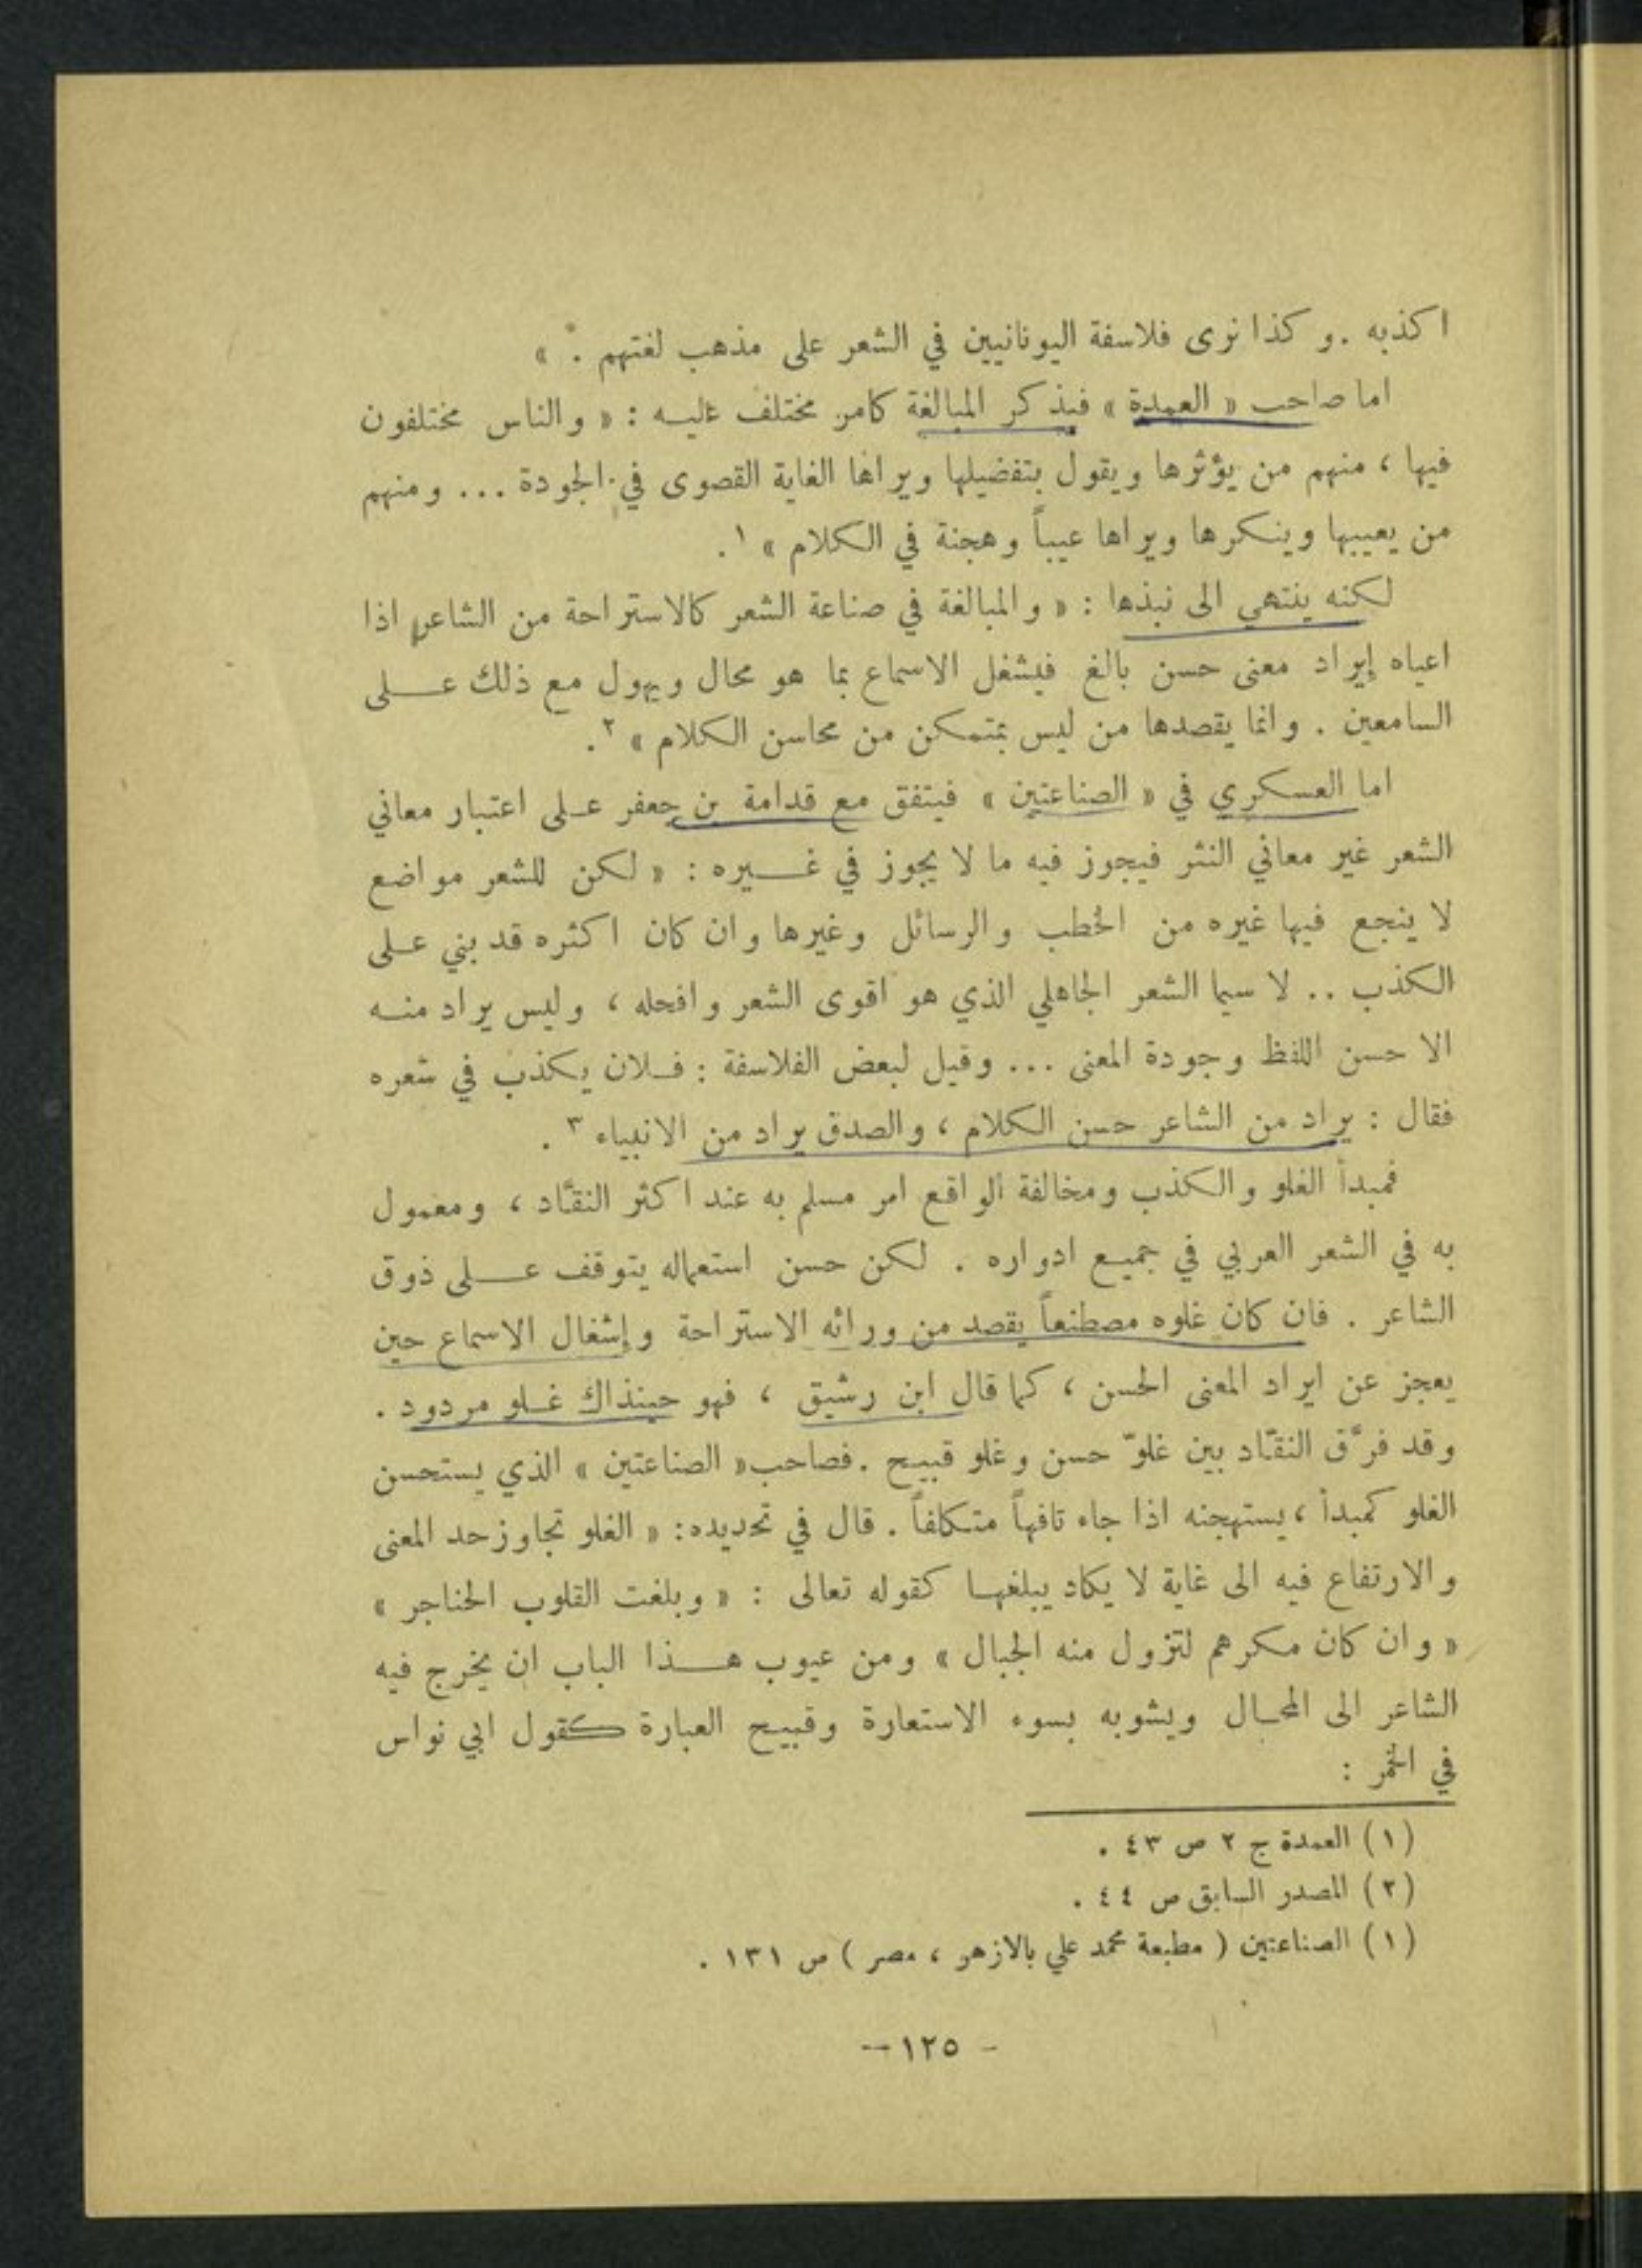 اكذبه . وكذا نرى فلاسفة اليونانيين في الشعر على مذهب لغتهم . »
اما صاحب « العمدة » فيذكر المبالغة كامر مختلف عليه : « والناس مختلفون
فيها ، منهم من يؤثرها ويقول بتفضيلها ويراها الغاية القصوى في الجودة ... ومنهم
من يعيبها وينكرها ويراها عيباً وهجنة في الكلام » ١ .
لكنه ينتهي الى نبذها : « والمبالغة في صناعة الشعر كالاستراحة من الشاعر اذا
اعياه إيراد معنى حسن بالغ فيشغل الاسماع بما هو محال ويهول مع ذلك على
السامعين . وانما يقصدها من ليس بمتمكن من محاسن الكلام » ٢ .
اما العسكري في « الصناعتين » فيتفق مع قدامة بن جعفر على اعتبار معاني
الشعر غير معاني النثر فيجوز فيه ما لا يجوز في غيره : « لكن للشعر مواضع
لا ينجع فيها غيره من الخطب والرسائل وغيرها وان كان اكثره قد بني على
الكذب .. لا سيما الشعر الجاهلي الذي هو اقوى الشعر وافحله ، وليس يراد منه
الا حسن اللفظ وجودة المعنى ... وقيل لبعض الفلاسفة : فلان يكذب في شعره
فقال : يراد من الشاعر حسن الكلام ، والصدق يراد من الانبياء ٣ .
فمبدأ الغلو والكذب ومخالفة الواقع امر مسلم به عند اكثر النقّاد ، ومعمول
به في الشعر العربي في جميع ادواره . لكن حسن استعماله يتوقف على ذوق
الشاعر . فان كان غلوه مصطنعاً يقصد من ورائه الاستراحة وإشغال الاسماع حين
يعجز عن ايراد المعنى الحسن ، كما قال ابن رشيق ، فهو حينذاك غلو مردود .
وقد فرَّق النقّاد بين غلوّ حسن وغلو قبيح . فصاحب « الصناعتين » الذي يستحسن
الغلو كمبدأ ، يستهجنه اذا جاء تافهاً متكلفاً . قال في تحديده : « الغلو تجاوز حد المعنى
والارتفاع فيه الى غاية لا يكاد يبلغها كقوله تعالى : « وبلغت القلوب الحناجر »
« وان كان مكرهم لتزول منه الجبال » ومن عيوب هذا الباب ان يخرج فيه
الشاعر الى المحال ويشوبه بسوء الاستعارة وقبيح العبارة كقول ابي نواس
في الخمر :
(١) العمدة ج ٢ ص ٤٣ .
(٢) المصدر السابق ص ٤٤ .
(١) الصناعتين ( مطبعة محمد علي بالازهر ، مصر ) ص ١٣١ .
- ١٢٥ -